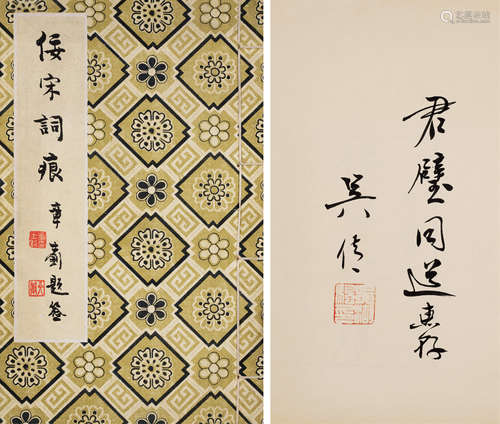 佞宋詞痕
章
題簽
君璧同道惠存
吳倩